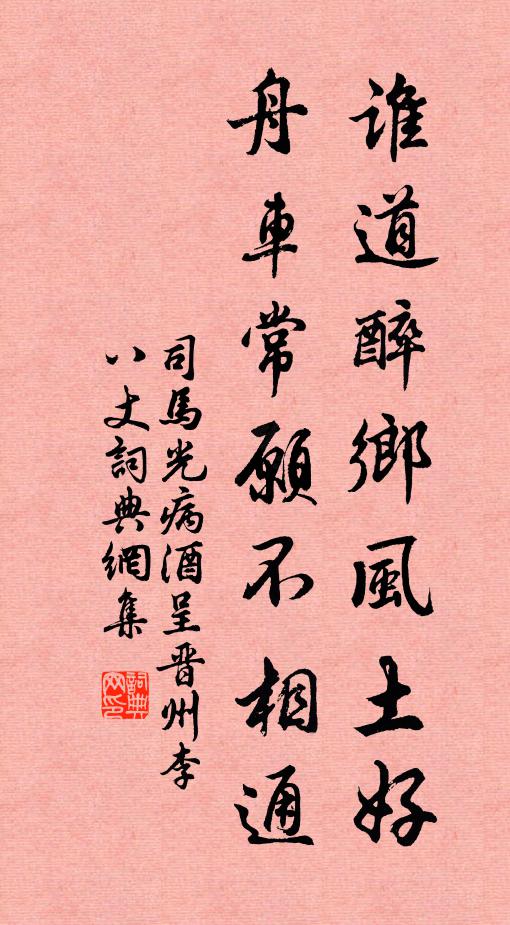 誰道醉鄉風土好
舟車常願不相通
司馬光病酒呈晋州李
八丈詞典網集
詞典网印